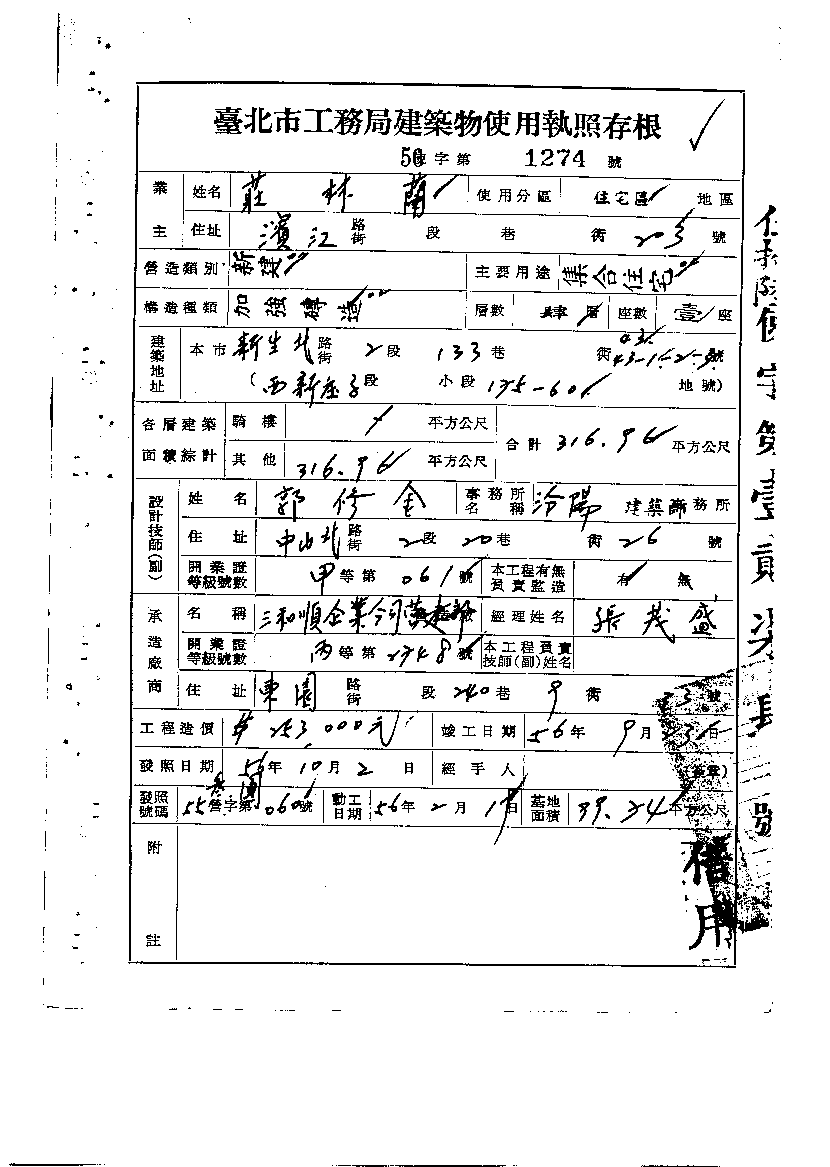 臺北市工務局建築物使用執照存根
56 字第 1274 號
業主 姓名 莊林蘭 使用分區 住宅區 地區
住址 濱江 路街 段 巷 衖 203 號
營造類別 新建 主要用途 集合住宅
構造種類 加強磚造 層數 層 座數 壹 座
建築地址 本市 新生北 路街 2 段 133 巷 衖 號
(西新庄子段 小段 175-60 地號)
各層建築面積綜計 騎樓 平方公尺 合計 316.96 平方公尺
其他 316.96 平方公尺
設計技師(副) 姓名 郭修金 事務所名稱 汾陽 建築師事務所
住址 中山北 路街 2 段 20 巷 衖 26 號
開業證等級號數 甲等第 061 號 本工程有無負責監造 有 無
承造廠商 名稱 三和順企業公司 經理姓名 張茂盛
開業證等級號數 丙等第 2748 號 本工程負責技師(副)姓名
住址 東園 路街 段 240 巷 9 衖 號
工程造價 253,000元 竣工日期 56年 9月 日
發照日期 56年 10月 2 日 經手人
發照號碼 55 營字第 060 號 動工日期 56年 2月 日 基地面積 99.24 平方公尺
附註
借用
使字第壹貳柒 號